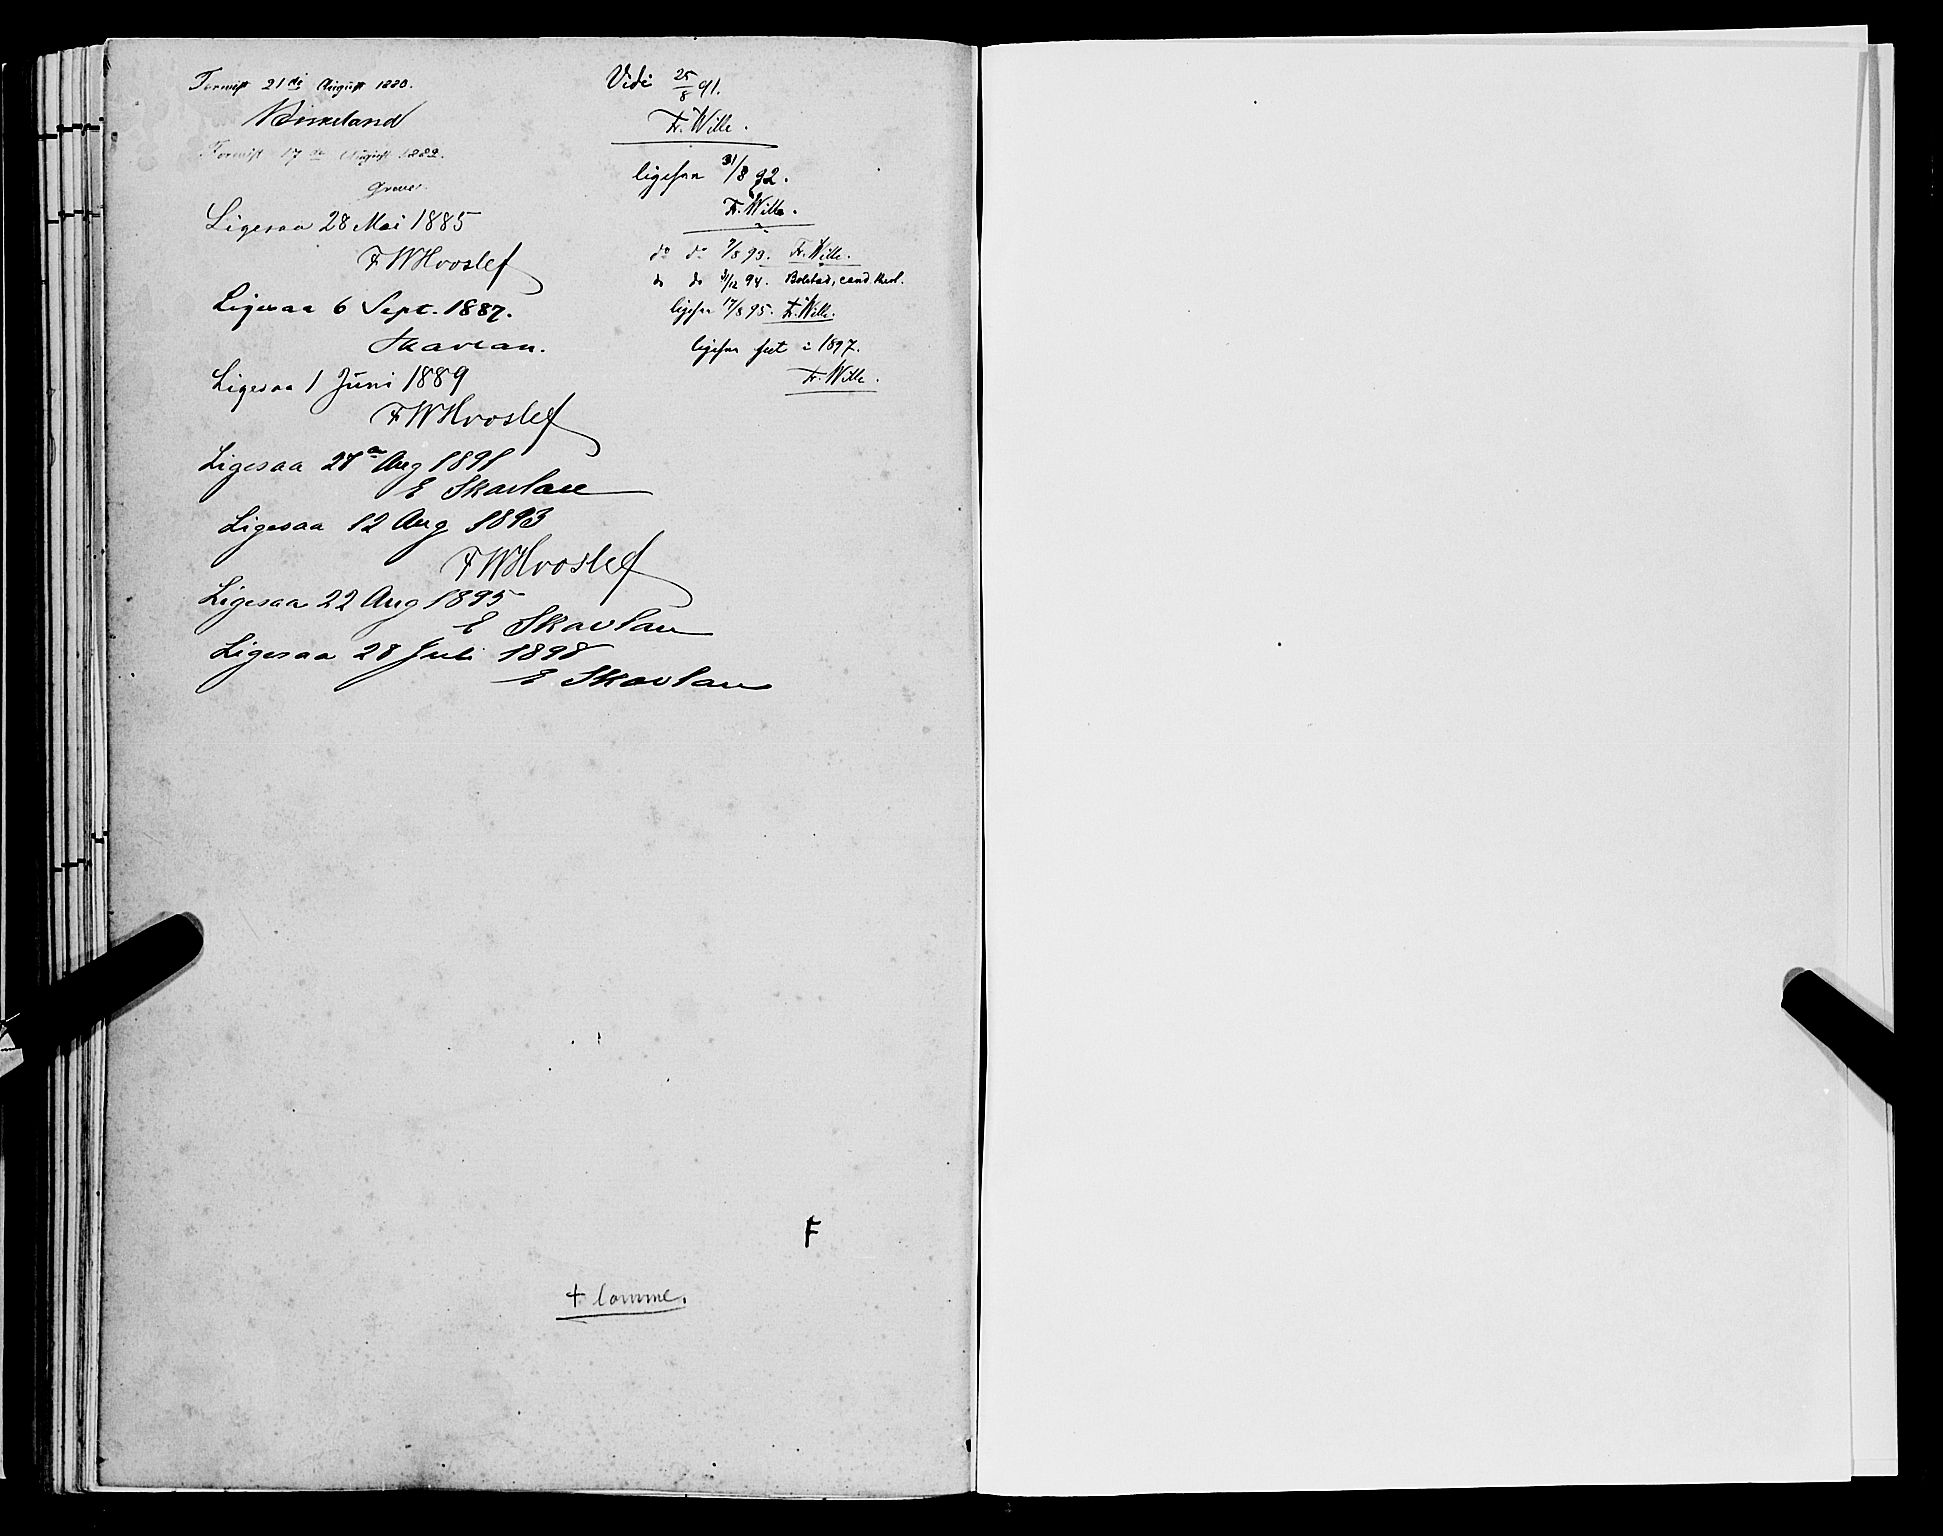 21de August 1880.
Birkeland
17de August 1882.
Greve.
Ligesaa 28 Mai 1885
F W Hvoslef
Ligesaa 6 Sept. 1887.
Skavlan.
Ligesaa 1 Juni 1889
F W Hvoslef
Ligesaa 27de Aug 1891
E Skavlan
Ligesaa 12 Aug 1893
F W Hvoslef
Ligesaa 22 Aug 1895
E Skavlan
Ligesaa 28 Juli 1898
E Skavlan
Vidi 25/8 91.
Fr. Wille.
ligesaa 31/8 92.
Fr. Wille.
do do 7/8 93. Fr. Wille.
do do 31/12 94. Bolstad, cand. theol.
ligesaa 17/8 95. Fr. Wille.
ligesaa seet i 1897.
Fr. Wille.
F
+ lomme.